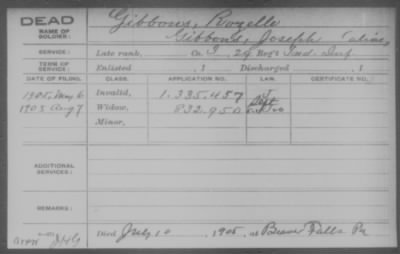 DEAD
NAME OF SOLDIER:
Gibbons, Rozelle
Gibbons, Joseph (alias,
SERVICE:
Late rank, Co. I, 24 Reg't Ind. Inf.
TERM OF SERVICE:
Enlisted , 1 Discharged , 1
DATE OF FILING.
CLASS.
APPLICATION NO.
LAW.
CERTIFICATE NO.
1905, May 6
Invalid,
1.335.457
1905 Aug 7
Widow,
832.950
Minor,
ADDITIONAL SERVICES:
REMARKS:
Died July 10 1905, at Beaver Falls Pa